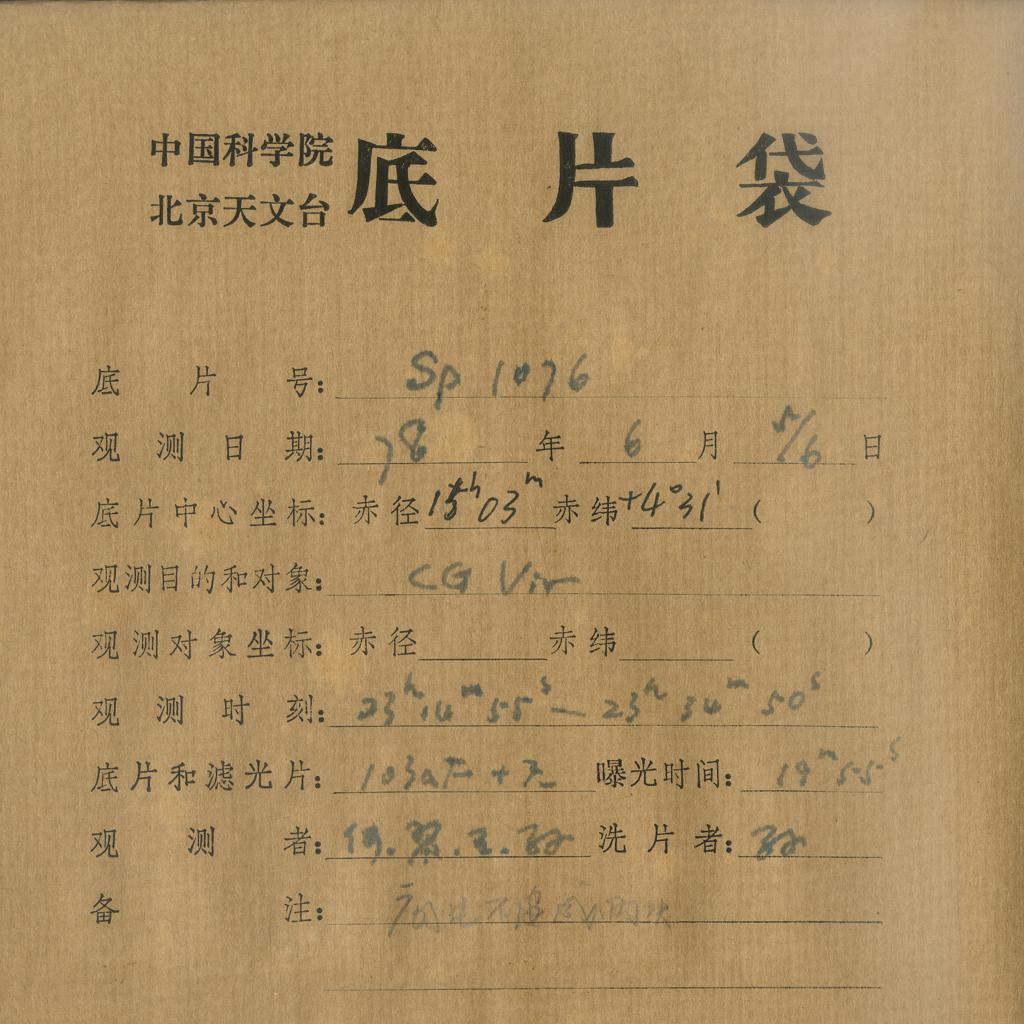 中国科学院
北京天文台
底片袋
底片号: Sp 1076
观测日期: 78 年 6 月 5/6 日
底片中心坐标: 赤径 15ʰ03ᵐ 赤纬 +4°31′ ( )
观测目的和对象: CG Vir
观测对象坐标: 赤径 赤纬 ( )
观测时刻: 23ʰ14ᵐ55ˢ — 23ʰ34ᵐ50ˢ
底片和滤光片: 103aF + 无 曝光时间: 19ᵐ55ˢ
观测者: 王.孙 洗片者: 孙
备注: